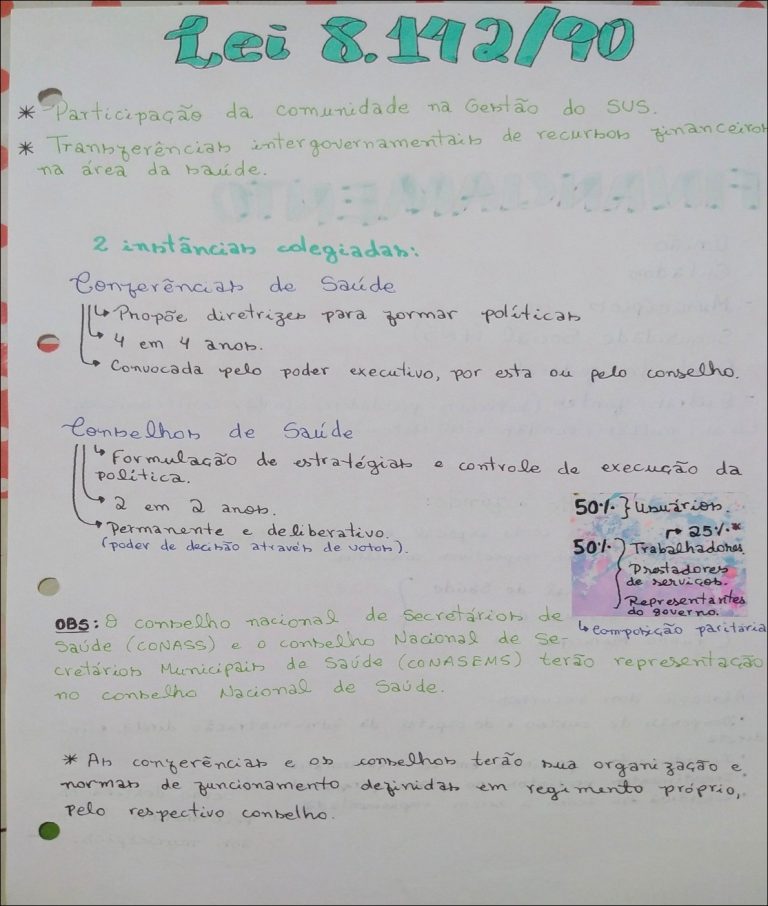 Lei 8.142/90
* Participação da comunidade na Gestão do SUS.
* Transferências intergovernamentais de recursos financeiros
na área da saúde.
FINANCIAMENTO
2 instâncias colegiadas:
Conferências de Saúde
↳ Propõe diretrizes para formar políticas
↳ 4 em 4 anos.
↳ Convocada pelo poder executivo, por esta ou pelo conselho.
Conselhos de Saúde
↳ Formulação de estratégias e controle de execução da
política.
↳ 2 em 2 anos.
↳ Permanente e deliberativo.
(poder de decisão através de votos).
50% } Usuários.
↱ 25%*
50% } Trabalhadores.
Prestadores
de serviços.
Representantes
do governo.
↳ Composição paritária
OBS: O conselho nacional de Secretários de
Saúde (CONASS) e o conselho Nacional de Se-
cretários Municipais de Saúde (CONASEMS) terão representação
no conselho Nacional de Saúde.
* As conferências e os conselhos terão sua organização e
normas de funcionamento definidas em regimento próprio,
pelo respectivo conselho.